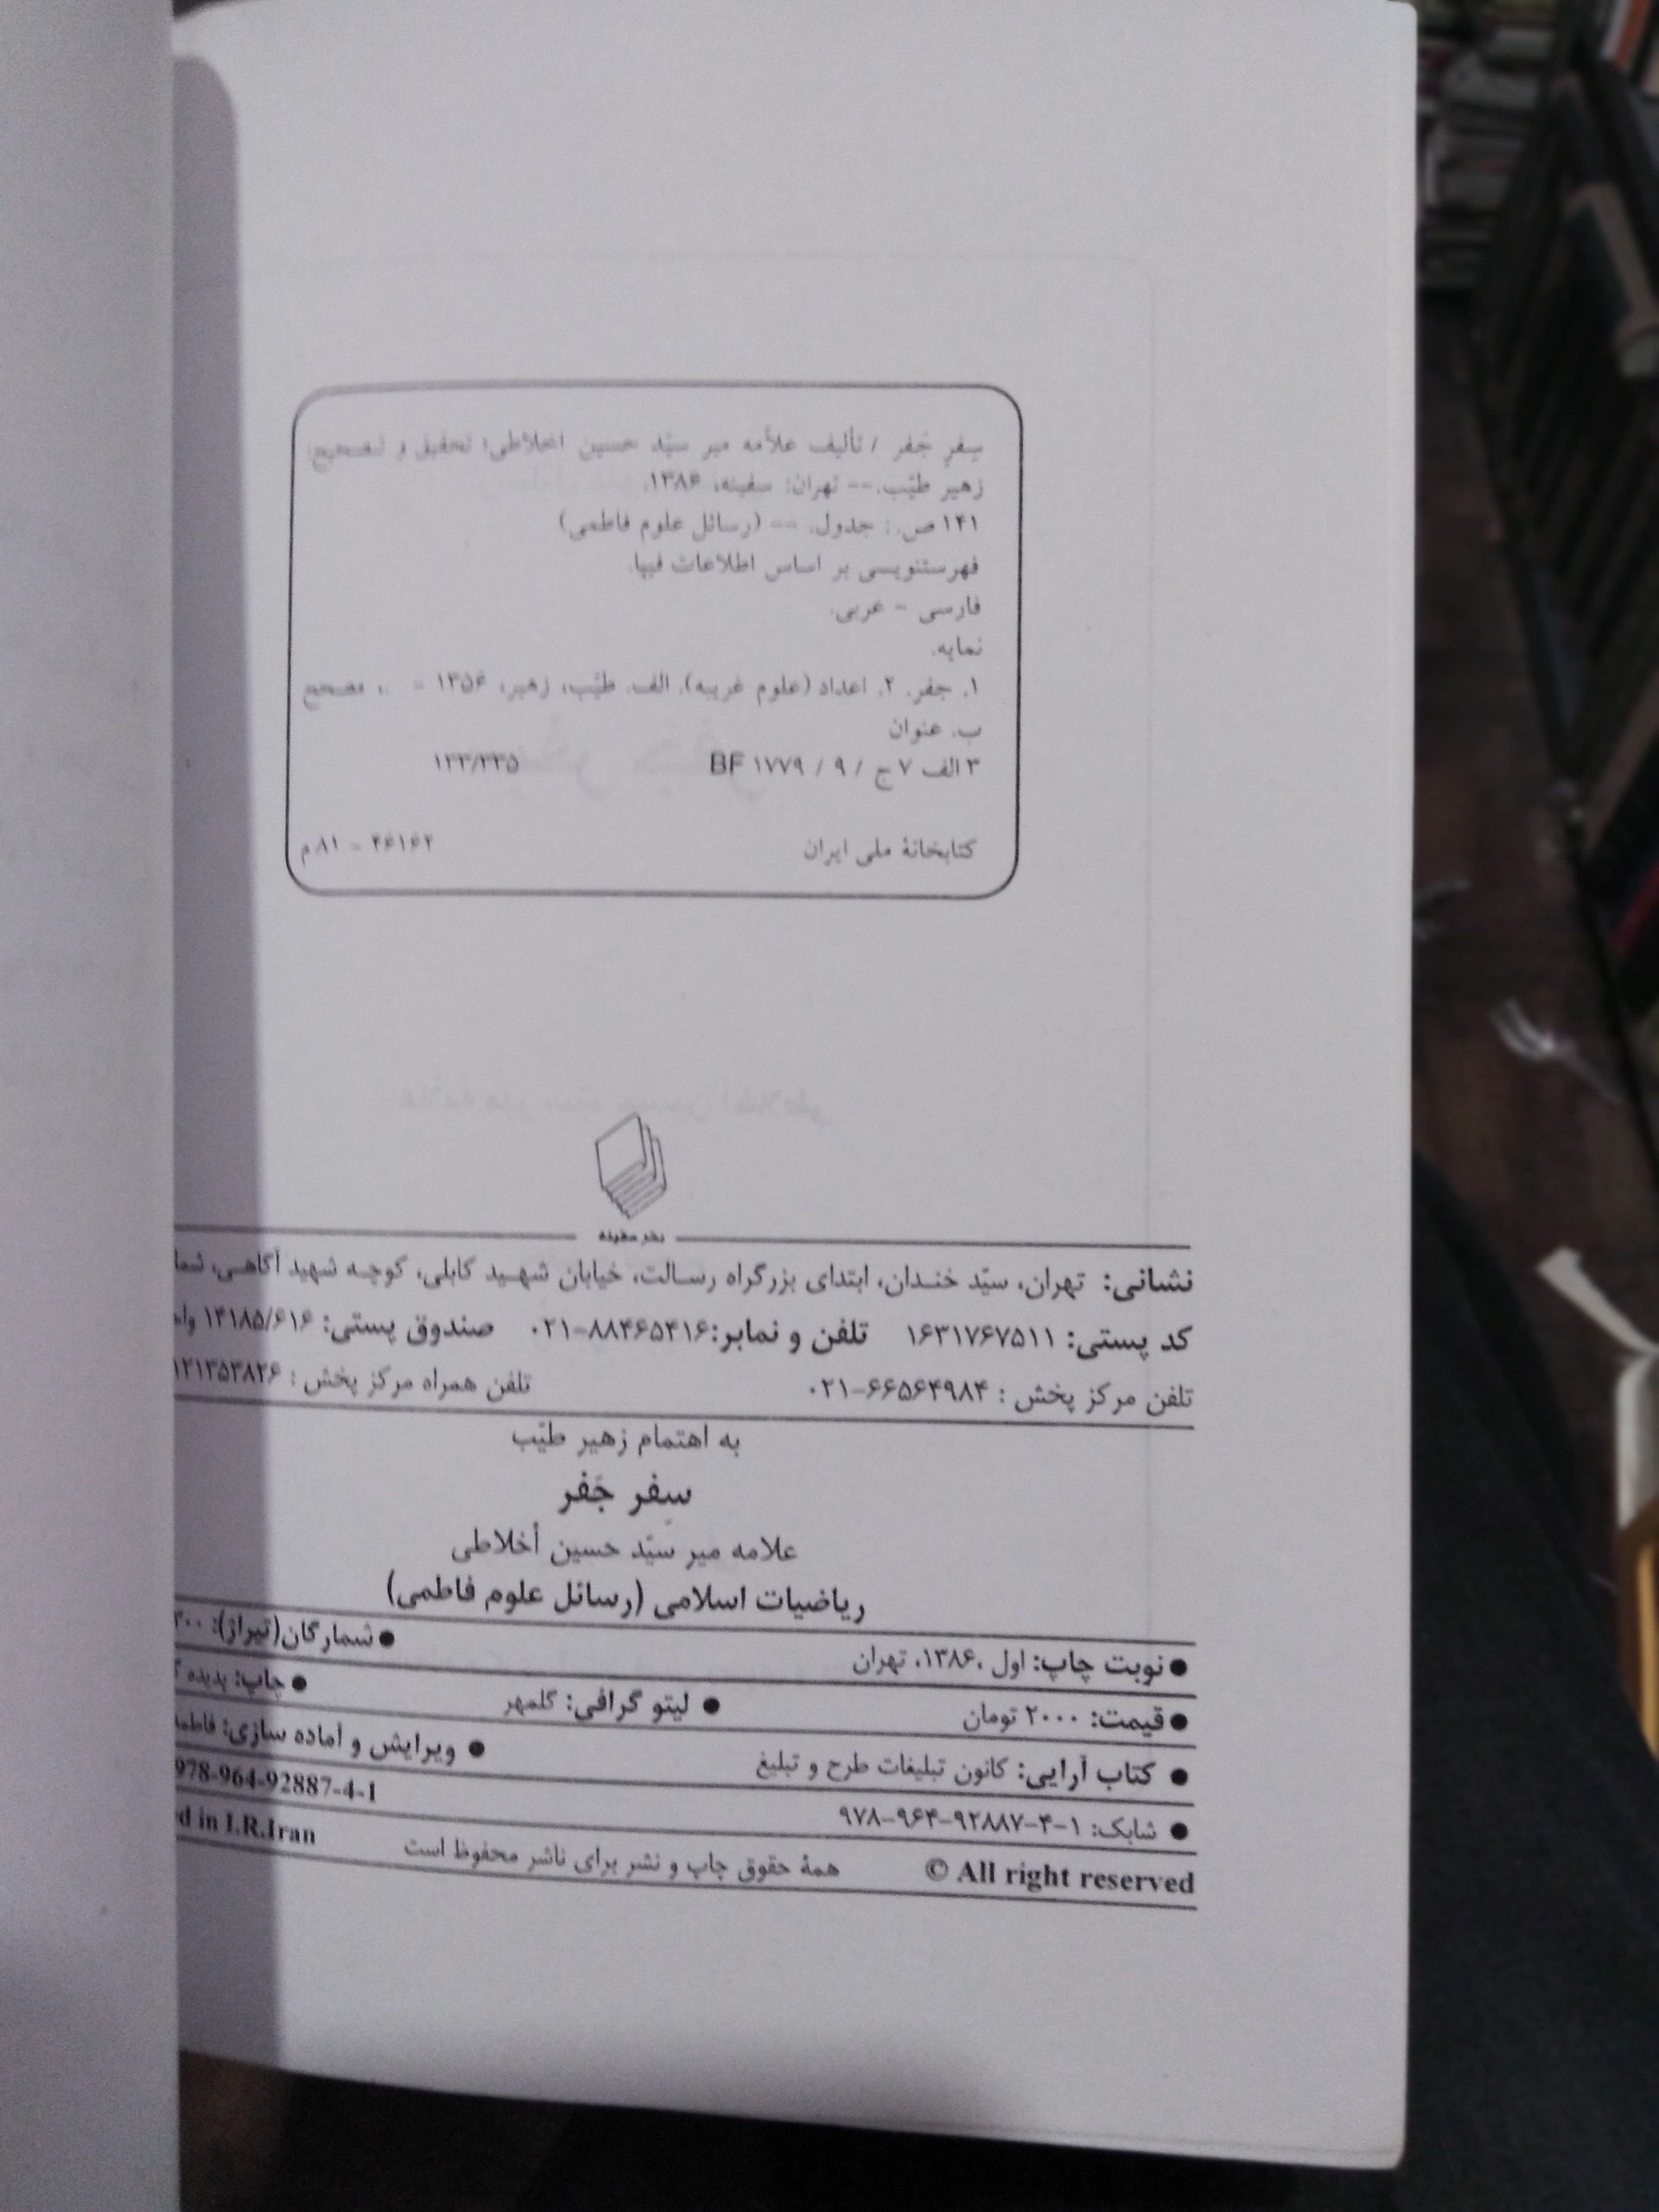 سِفرِ جَفر / تألیف علاّمه میر سیّد حسین اخلاطی؛ تحقیق و تصحیح:
زهیر طیّب.-- تهران: سفینه، ۱۳۸۶.
۱۴۱ ص.: جدول. -- (رسائل علوم فاطمی)
فهرستنویسی بر اساس اطلاعات فیپا.
فارسی - عربی.
نمایه.
۱. جفر. ۲. اعداد (علوم غریبه). الف. طیّب، زهیر، ۱۳۵۶ = .، مصحح
ب. عنوان
۳ الف ۷ ج / ۹ / BF ۱۷۷۹ ۱۳۳/۳۳۵
کتابخانهٔ ملی ایران ۴۶۱۶۲ = ۸۱ م
نشر سفینه
نشانی: تهران، سیّد خندان، ابتدای بزرگراه رسالت، خیابان شهید کابلی، کوچه شهید آگاهی، شما
کد پستی: ۱۶۳۱۷۶۷۵۱۱ تلفن و نمابر: ۸۸۴۶۵۴۱۶-۰۲۱ صندوق پستی: ۱۴۱۸۵/۶۱۶
تلفن مرکز پخش : ۶۶۵۶۴۹۸۴-۰۲۱ تلفن همراه مرکز پخش :
به اهتمام زهیر طیّب
سِفر جَفر
علامه میر سیّد حسین أخلاطی
ریاضیات اسلامی (رسائل علوم فاطمی)
● نوبت چاپ: اول ،۱۳۸۶، تهران ● شمارگان(تیراژ):
● قیمت: ۲۰۰۰ تومان ● لیتو گرافی: گلمهر ● چاپ: پدیده
● کتاب آرایی: کانون تبلیغات طرح و تبلیغ ● ویرایش و آماده سازی:
● شابک: ۱-۴-۹۲۸۸۷-۹۶۴-۹۷۸ 978-964-92887-4-1
© All right reserved همهٔ حقوق چاپ و نشر برای ناشر محفوظ است d in I.R.Iran